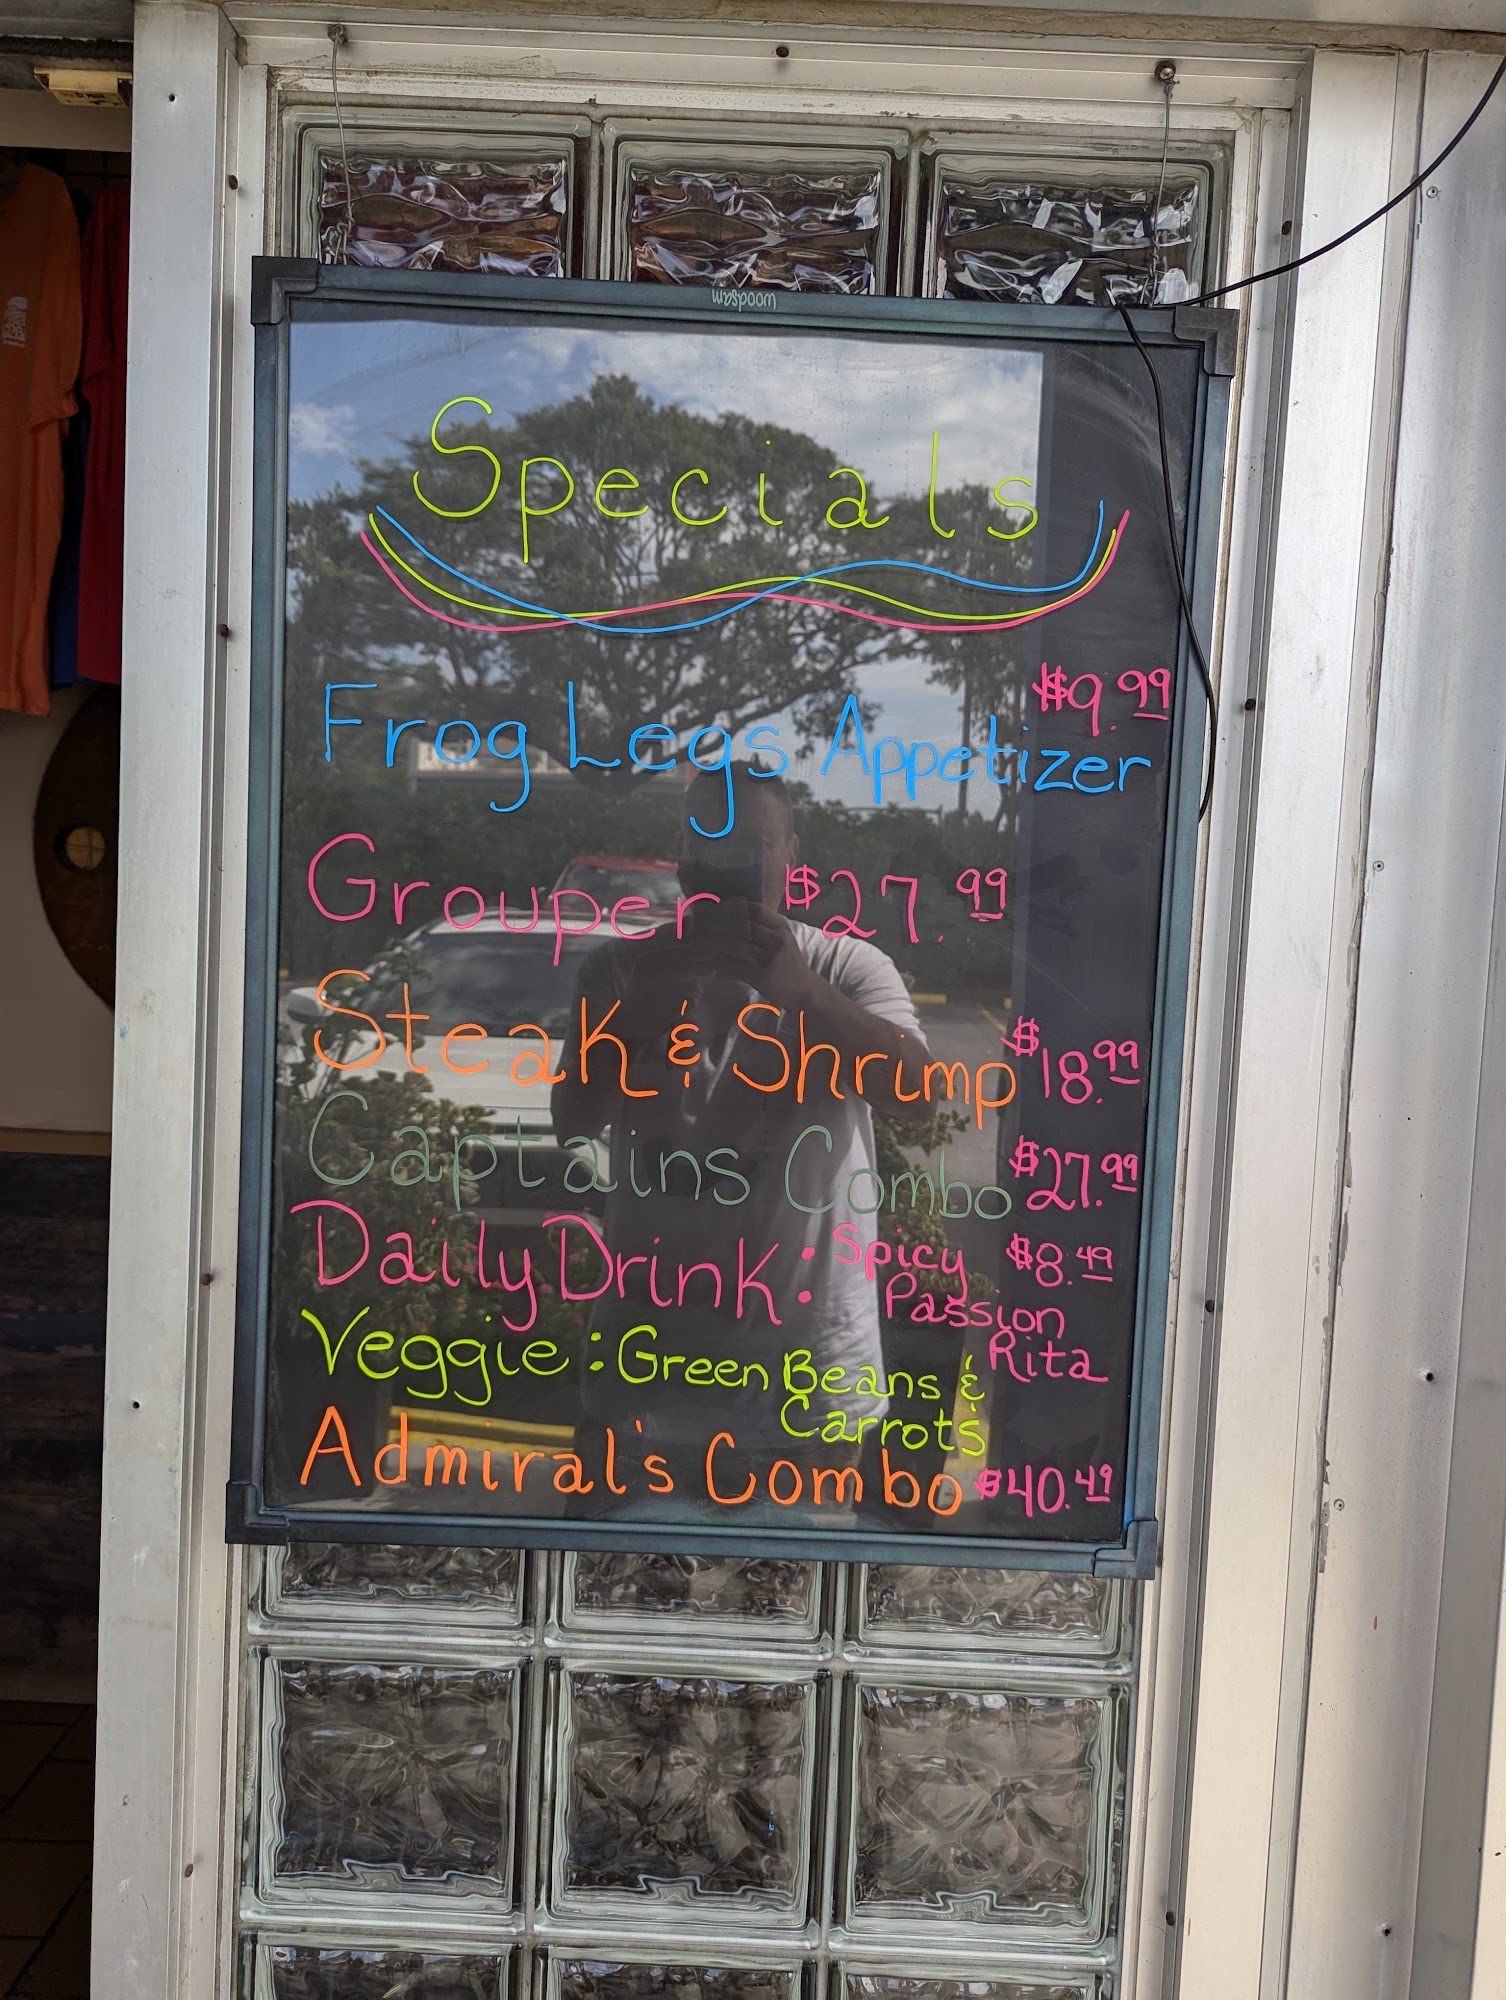 woodsam
Specials
$9.99
Frog Legs Appetizer
Grouper $27.99
Steak & Shrimp $18.99
Captains Combo $27.99
Daily Drink: Spicy $8.49
Passion
Rita
Veggie: Green Beans &
Carrots
Admiral's Combo $40.49